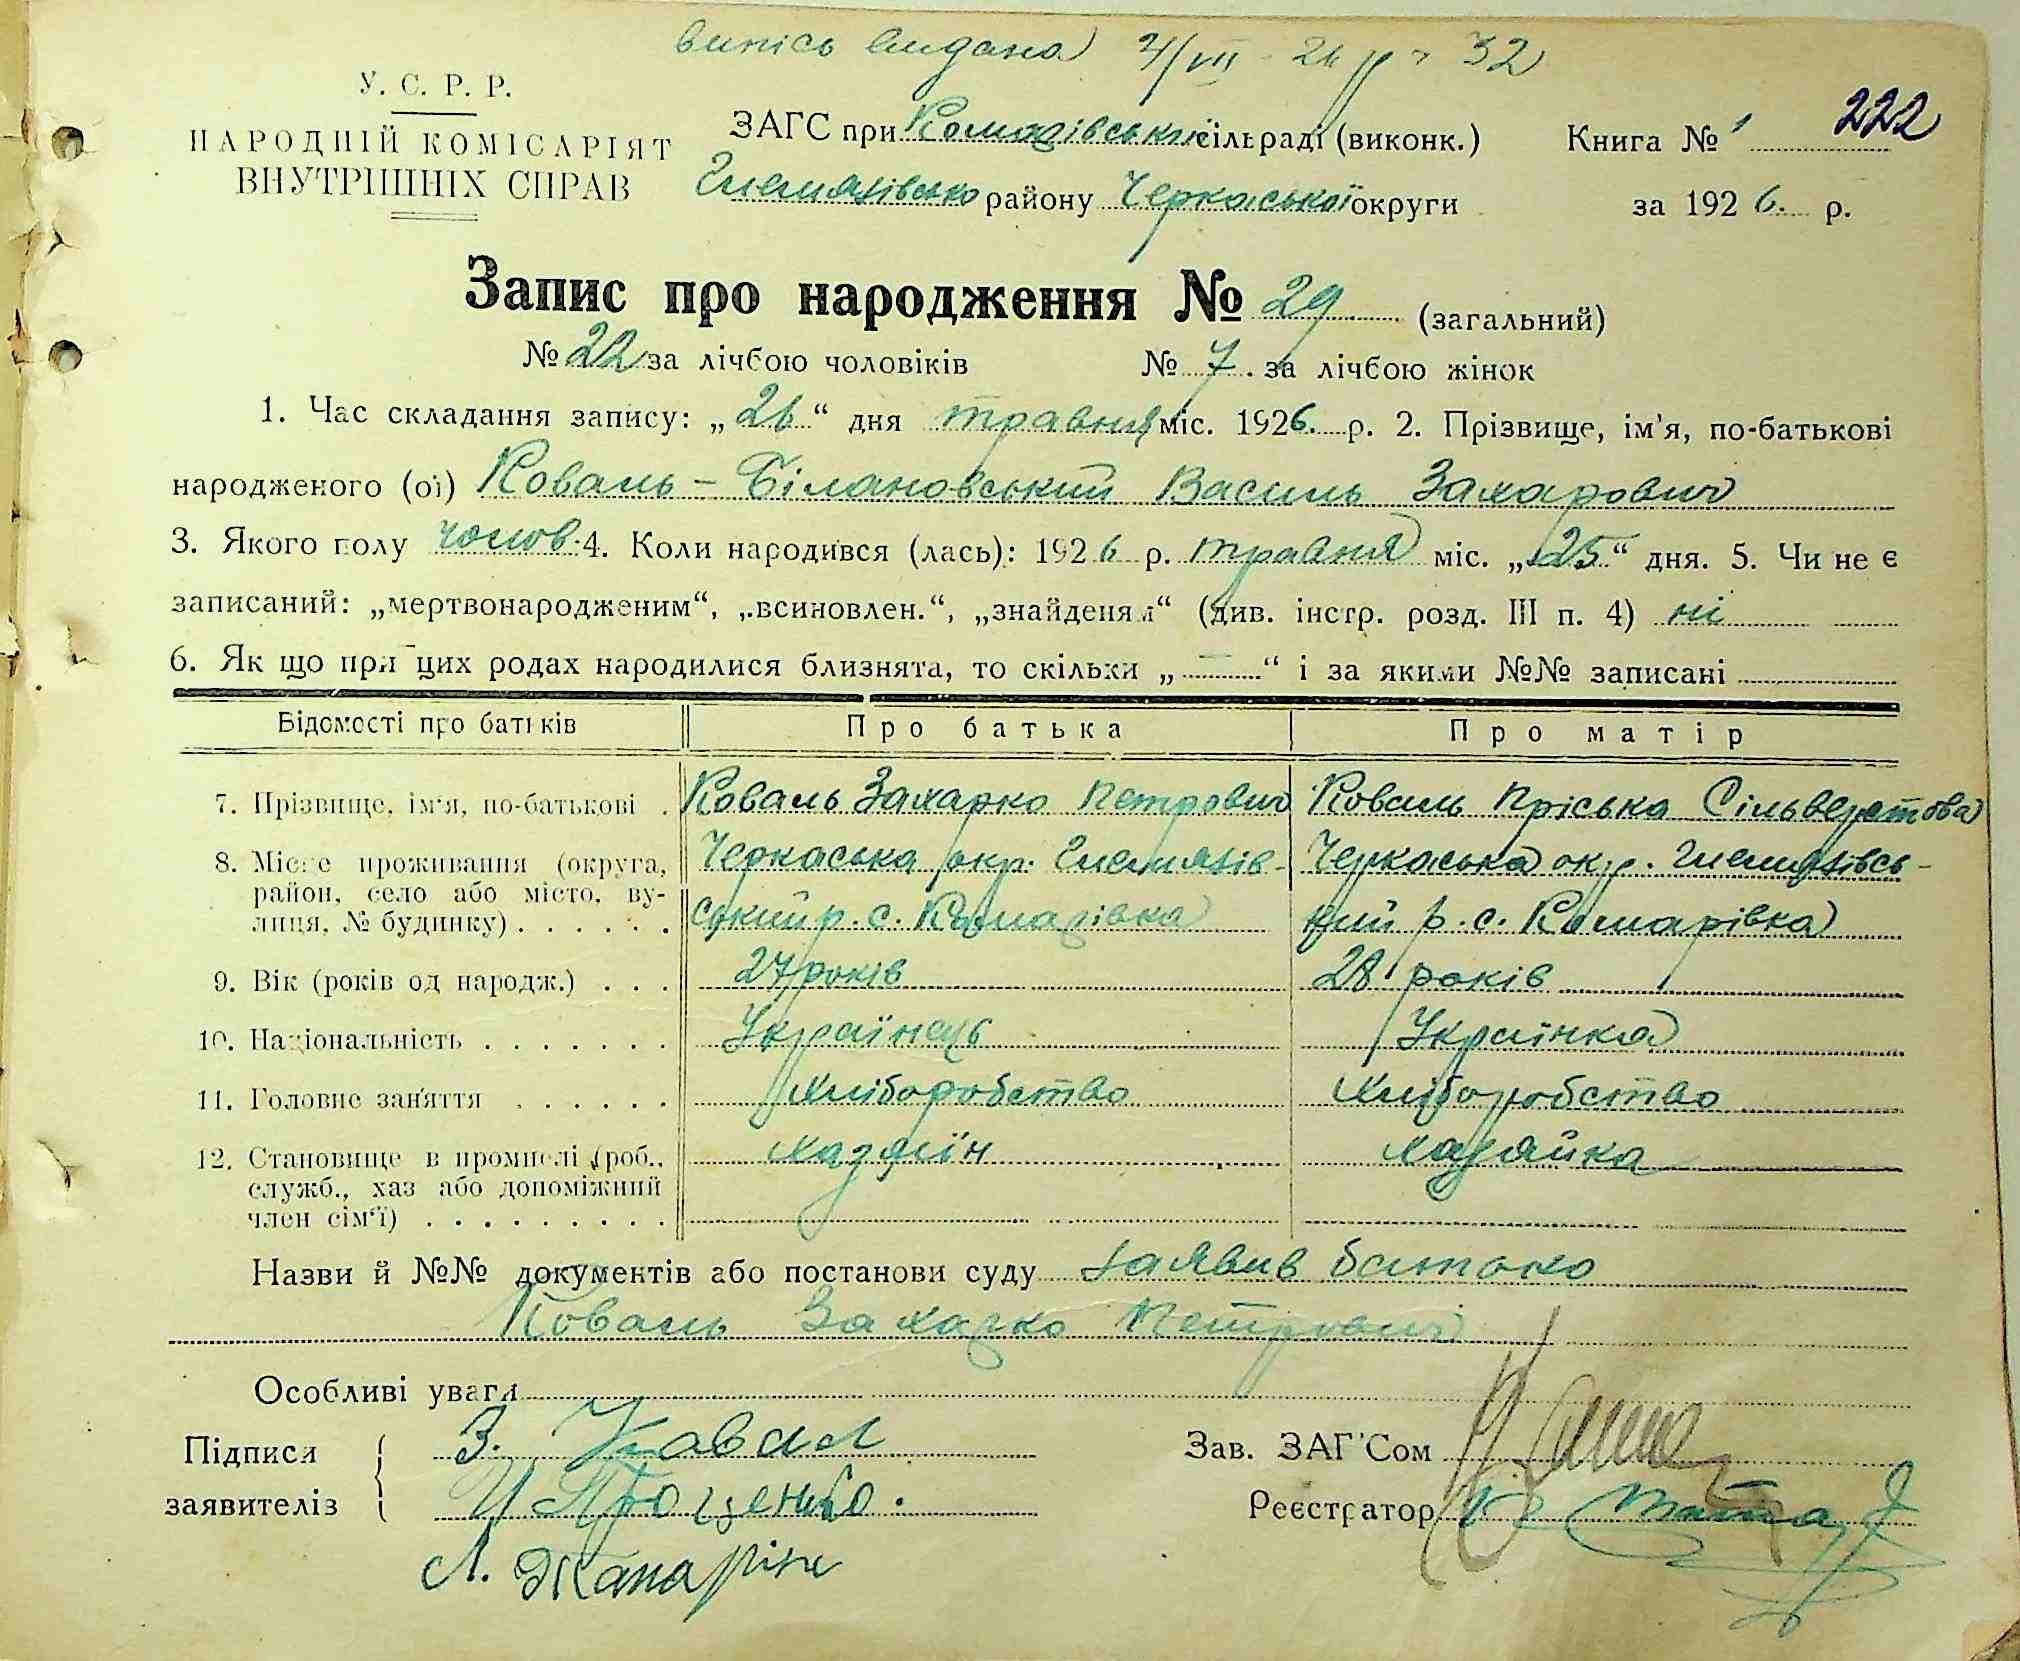 випісь видана 7/VII - 26 р 32
У. С. Р. Р.
НАРОДНІЙ КОМІСАРІЯТ
ВНУТРІШНІХ СПРАВ
ЗАГС при Комарівській сільраді (виконк.)
Гельмязівсько району Черкаської округи
Книга № 1 222
за 1926. р.
Запис про народження № 29 (загальний)
№ 22 за лічбою чоловіків № 7 за лічбою жінок
1. Час складання запису: „26“ дня травня міс. 1926. р. 2. Прізвище, ім'я, по-батькові
народженого (ої) Коваль - Білановський Василь Захарович
3. Якого полу чолов. 4. Коли народився (лась): 1926 р. травня міс. „25“ дня. 5. Чи не є
записаний: „мертвонародженим“, „всиновлен.“, „знайденям“ (див. інстр. розд. III п. 4) ні
6. Як що при цих родах народилися близнята, то скільки „—“ і за якими №№ записані
Відомості про батьків Про батька Про матір
7. Прізвище, ім'я, по-батькові . Коваль Захарко Петрович Коваль Пріська Сільверстова
8. Місце проживання (округа, Черкаська окр. Гельмязів- Черкаська окр. Гельмязівсь-
район, село або місто, ву-
лиця, № будинку) . . . . . . ський р. с. Комарівка кий р. с. Комарівка
9. Вік (років од народж.) . . . 27 років 28 років
10. Національність . . . . . . . Українець Українка
11. Головне заняття . . . . . . хліборобство хліборобство
12. Становище в промислі (роб., хазяїн хазяйка
служб., хаз або допоміжний
член сім'ї) . . . . . . . . .
Назви й №№ документів або постанови суду заявив батько
Коваль Захарко Петрович
Особливі уваги
Підписи З. Ковал Зав. ЗАГ'Сом
заявителів И Проценко. Реєстратор
Л.